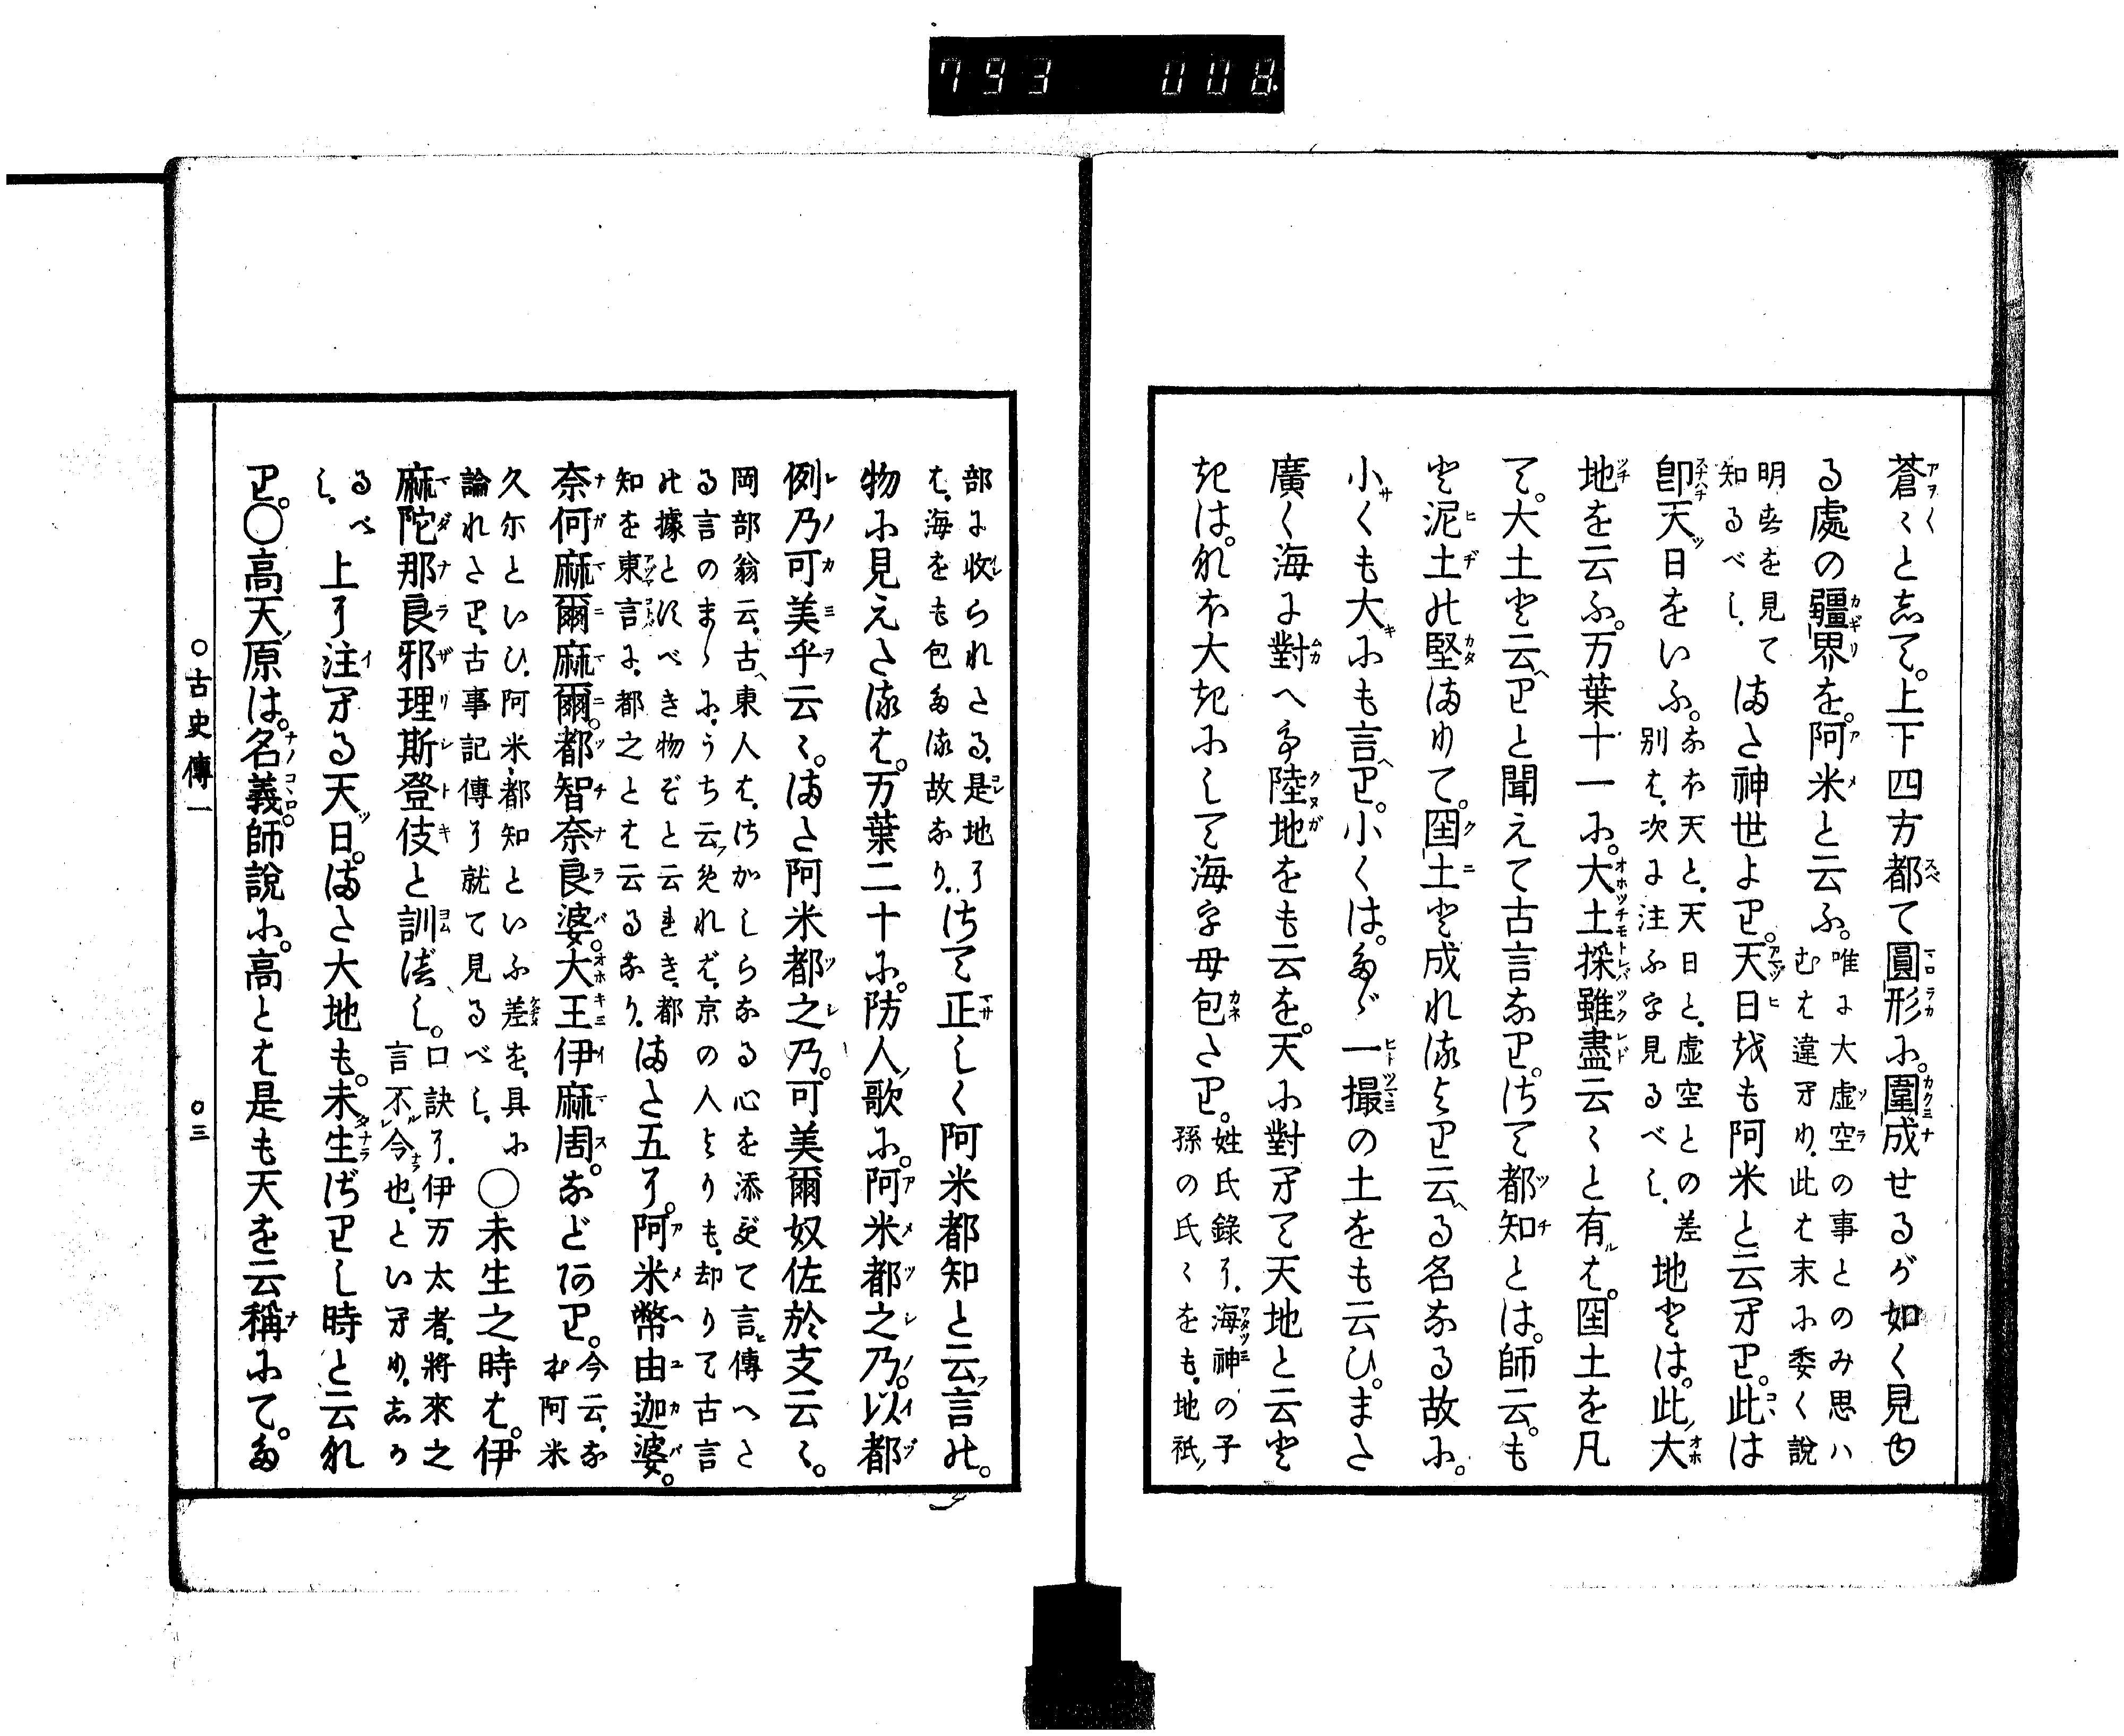 793 008
蒼〻と志て。上下四方都て圓形に。圍成せるが如く見ゆ
る處の疆界を。阿米と云ふ。唯に大虚空の事とのみ思ハ
むは違へり。此は末に委く説
明せるを見て
知るべし。また神世より。天日をも阿米と云へり。此は
即天日をいふ。なほ天と。天日と。虚空との差
別は。次に注ふ字見るべし。地とは。此大
地を云ふ。万葉十一に。大土採雖盡云〻と有は。国土を凡
て。大土と云へりと聞えて古言なり。さて都知とは。師云。も
と泥土の堅まりて。国土と成れるより云る名なる故に。
小くも大にも言へり。小くは。たゞ一撮の土をも云ひ。また
廣く海に對へて陸地をも云を。天に對へて天地と云と
きは。なほ大きにして海字母包たり。姓氏錄に。海神の子
孫の氏〻をも。地祇
部に收られたる。是地に
は。海をも包たる故なり。さて正しく阿米都知と云言の。
物に見えたるは。万葉二十に。防人歌に。阿米都之乃。以都
例乃可美乎云〻。また阿米都之乃。可美爾奴佐於支云〻。
岡部翁云。古東人は。さかしらなる心を添ずて言傳へた
る言のまゝに。うち云ふれば。京の人よりも。却りて古言
の據とすべき物ぞと云れき。都
知を東言に。都之とは云るなり。また五に。阿米幣由迦婆。
奈何麻爾麻爾。都智奈良婆。大王伊麻周。などあり。今云。な
お阿米
久尓といひ。阿米都知といふ差を。具に
論れたり。古事記傳に就て見るべし。○未生之時は。伊
麻陀那良邪理斯登伎と訓べし。口訣に。伊万太者。將來之
言不今也。といへり。志か
るべ
し。上に注へる天日。また大地も。未生ざりし時と云れ
り。○高天原は。名義。師説に。高とは是も天を云稱にて。た
○古史傳一　○三